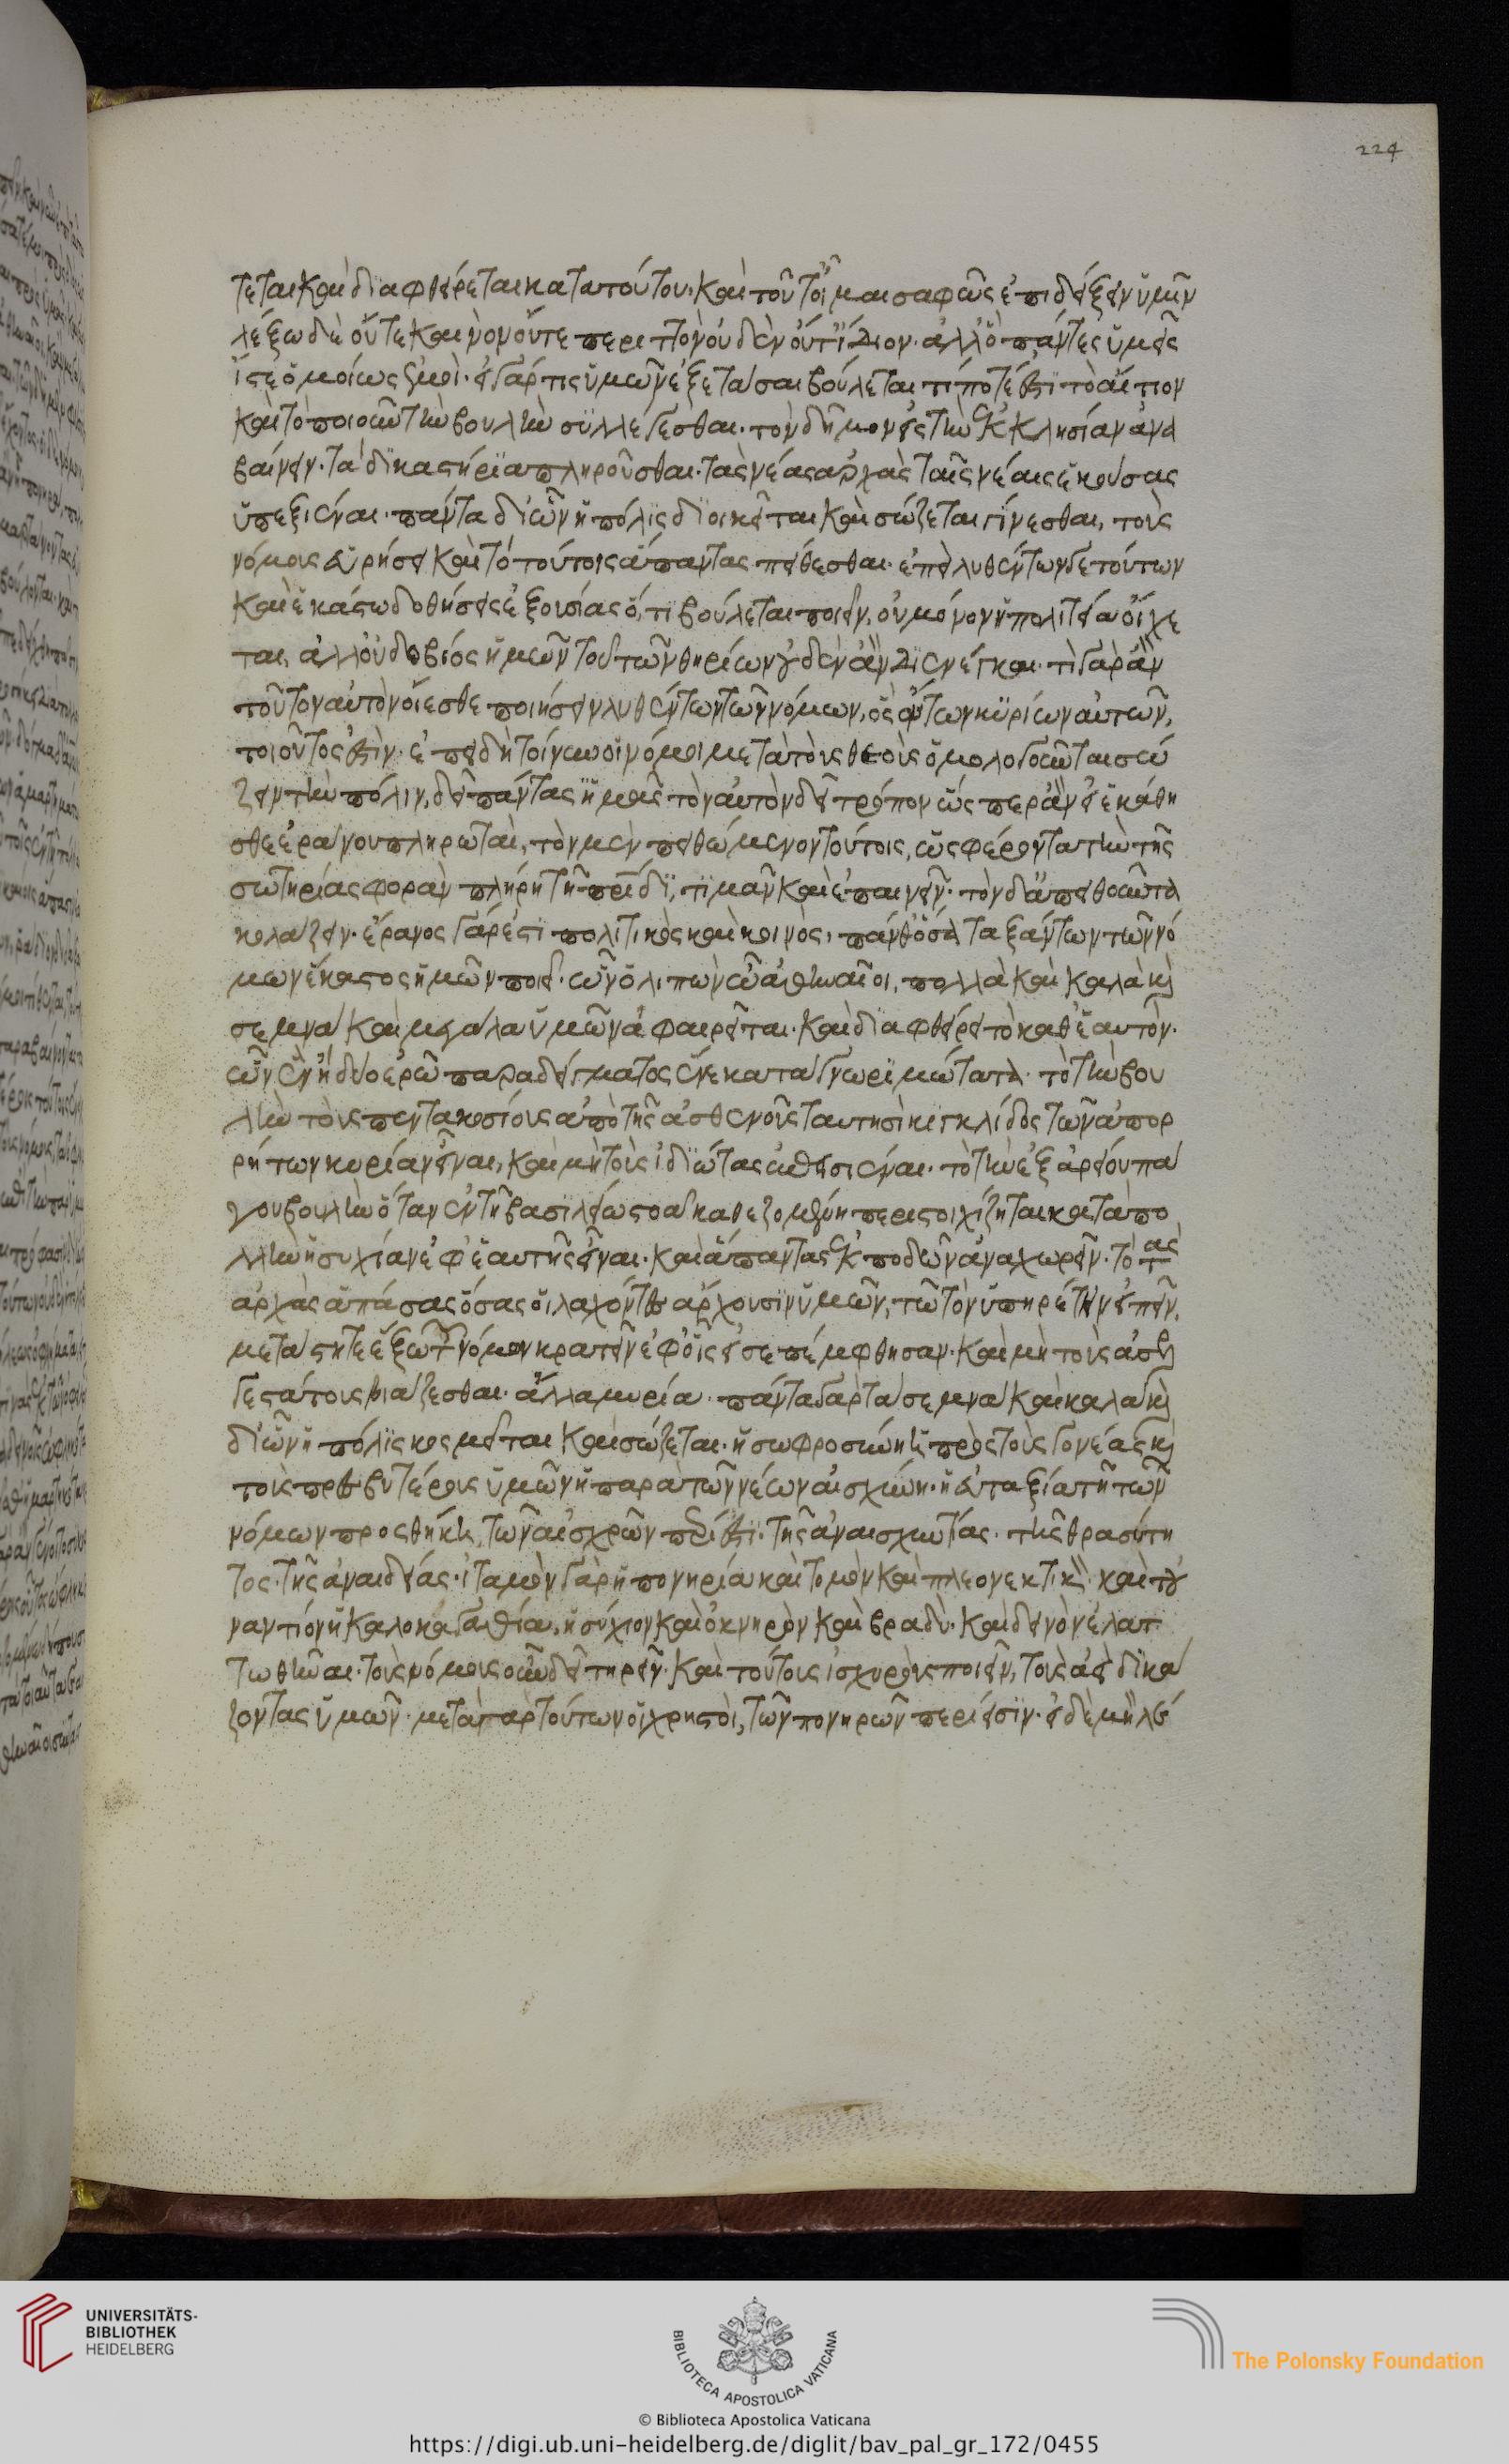 224
τεται καὶ διαφθείρεται κατὰ τούτου. καὶ τοῦτ' οἶμαι σαφῶς ἐπιδείξειν ὑμῖν
λέξω δὲ οὔτε καινὸν οὔτε περιττὸν οὐδὲν οὔτ' ἴδιον. ἀλλ' ὃ πάντες ὑμεῖς
ἴστε ὁμοίως ἐμοί. εἰ γάρ τις ὑμῶν ἐξετάσαι βούλεται τί ποτέ ἐστι τὸ αἴτιον
καὶ τὸ ποιοῦν τὴν βουλὴν συλλέγεσθαι. τὸν δῆμον εἰς τὴν ἐκκλησίαν ἀνα
βαίνειν. τὰ δικαστήρια πληροῦσθαι. τὰς νέας ἀρχὰς ταῖς νέαις ἑκούσας
ὑπεξιέναι. πάντα δι' ὧν ἡ πόλις διοικεῖται καὶ σώζεται γίνεσθαι, τοὺς
νόμους εὑρήσει καὶ τὸ τούτοις ἅπαντας πείθεσθαι. ἐπεὶ λυθέντων δε τούτων
καὶ ἑκάστω δοθήσεις ἐξουσίας ὅ,τι βούλεται ποιεῖν, οὐ μόνον ἡ πολιτεία οἴχε
ται, ἀλλ' οὐδ' ὁ βίος ἡμῶν τοῦ τῶν θηρίων οὐδὲν ἂν διενέγκαι. τί γὰρ ἂν
τοῦτον αὐτὸν οἴεσθε ποιήσειν λυθέντων τῶν νόμων, ὃς ὄντων κυρίων αὐτῶν,
τοιοῦτος ἐστίν. ἐπειδὴ τοίνυν οἱ νόμοι μετὰ τοὺς θεοὺς ὁμολογοῦνται σώ
ζειν τὴν πόλιν, δεῖ πάντας ἡμᾶς τὸν αὐτὸν δεῖ τρόπον ὥσπερ ἂν εἰ κάθη
σθε ἐράνου πληρωταὶ, τὸν μὲν πειθόμενον τούτοις, ὡς φέροντα τὴν τῆς
σωτηρίας φορὰν πλήρη τῆ πατρίδι, τιμᾶν καὶ ἐπαινεῖν. τὸν δ' ἀπειθοῦντα
κολάζειν. ἔρανος γάρ ἐστι πολιτικὸς καὶ κοινὸς, πάνθ' ὅσα ταξάντων τῶν νό
μων ἕκαστος ἡμῶν ποιεῖ. ὧν ὁ λιπὼν ὦ ἀθηναῖοι, πολλὰ καὶ καλὰ καὶ
σεμνὰ καὶ μεγάλα ὑμῶν ἀφαιρεῖται. καὶ διαφθείρει τὸ καθ' ἑαυτὸν.
ὧν ἓν ἢ δύο ἐρῶ παραδείγματος ἕνεκα τὰ γνωριμώτατα. τὸ τὴν βου
λὴν τοὺς πεντακοσίους ἀπὸ τῆς ἀσθενοῦς ταυτησὶ κιγκλίδος τῶν ἀπορ
ρήτων κυρίαν εἶναι, καὶ μὴ τοὺς ἰδιώτας ἐπεισιέναι. τὸ τὴν ἐξ ἀρείου πά
γου βουλὴν ὅταν ἐν τῆ βασιλείω στοᾶ καθεζομένη περιστοιχίζηται κατὰ πο
λλὴν ἡσυχίαν ἐφ' ἑαυτῆς εἶναι. καὶ ἅπαντας ἐκποδὼν ἀναχωρεῖν. τὸ τὰς
ἀρχὰς ἁπάσας ὅσας οἱ λαχόντες ἄρχουσιν ὑμῶν, τῶ τὸν ὑπηρέτην εἰπεῖν,
μετάστητε ἔξω τῶν νόμων κρατεῖν ἐφ' οἷς εἰσεπέμφθησαν. καὶ μὴ τοὺς ἀσελ
γεστάτους βιάζεσθαι. ἄλλα μυρία. πάντα γὰρ τὰ σεμνὰ καὶ καλὰ καὶ
δι' ὧν ἡ πόλις κοσμεῖται καὶ σώζεται. ἡ σωφροσύνη ἡ πρὸς τοὺς γονέας καὶ
τοὺς πρεσβυτέρους ὑμῶν ἡ παρὰ τῶν νέων αἰσχύνη. ἡ εὐταξία τῆ τῶν
νόμων προσθήκη, τῶν αἰσχρῶν περίεστι. τῆς ἀναισχυντίας. τῆς θρασύτη
τος. τῆς ἀναιδείας. ἰταμὸν γὰρ ἡ πονηρία καὶ τομὸν καὶ πλεονεκτικὸν. καὶ τοὐ
ναντίον ἡ καλοκαγαθία, ἡσύχιον καὶ ὀκνηρὸν καὶ βραδὺ. καὶ δεινὸν ἐλατ
τωθῆναι. τοὺς νόμους οὖν δεῖ τηρεῖν. καὶ τούτους ἰσχυροὺς ποιεῖν, τοὺς ἀεὶ δικά
ζοντας ὑμῶν. μετὰ γὰρ τούτων οἱ χρηστοὶ, τῶν πονηρῶν περίεισιν. εἰ δὲ μὴ λέ
UNIVERSITÄTS-
BIBLIOTHEK
HEIDELBERG
BIBLIOTECA APOSTOLICA VATICANA
The Polonsky Foundation
© Biblioteca Apostolica Vaticana
https://digi.ub.uni-heidelberg.de/diglit/bav_pal_gr_172/0455